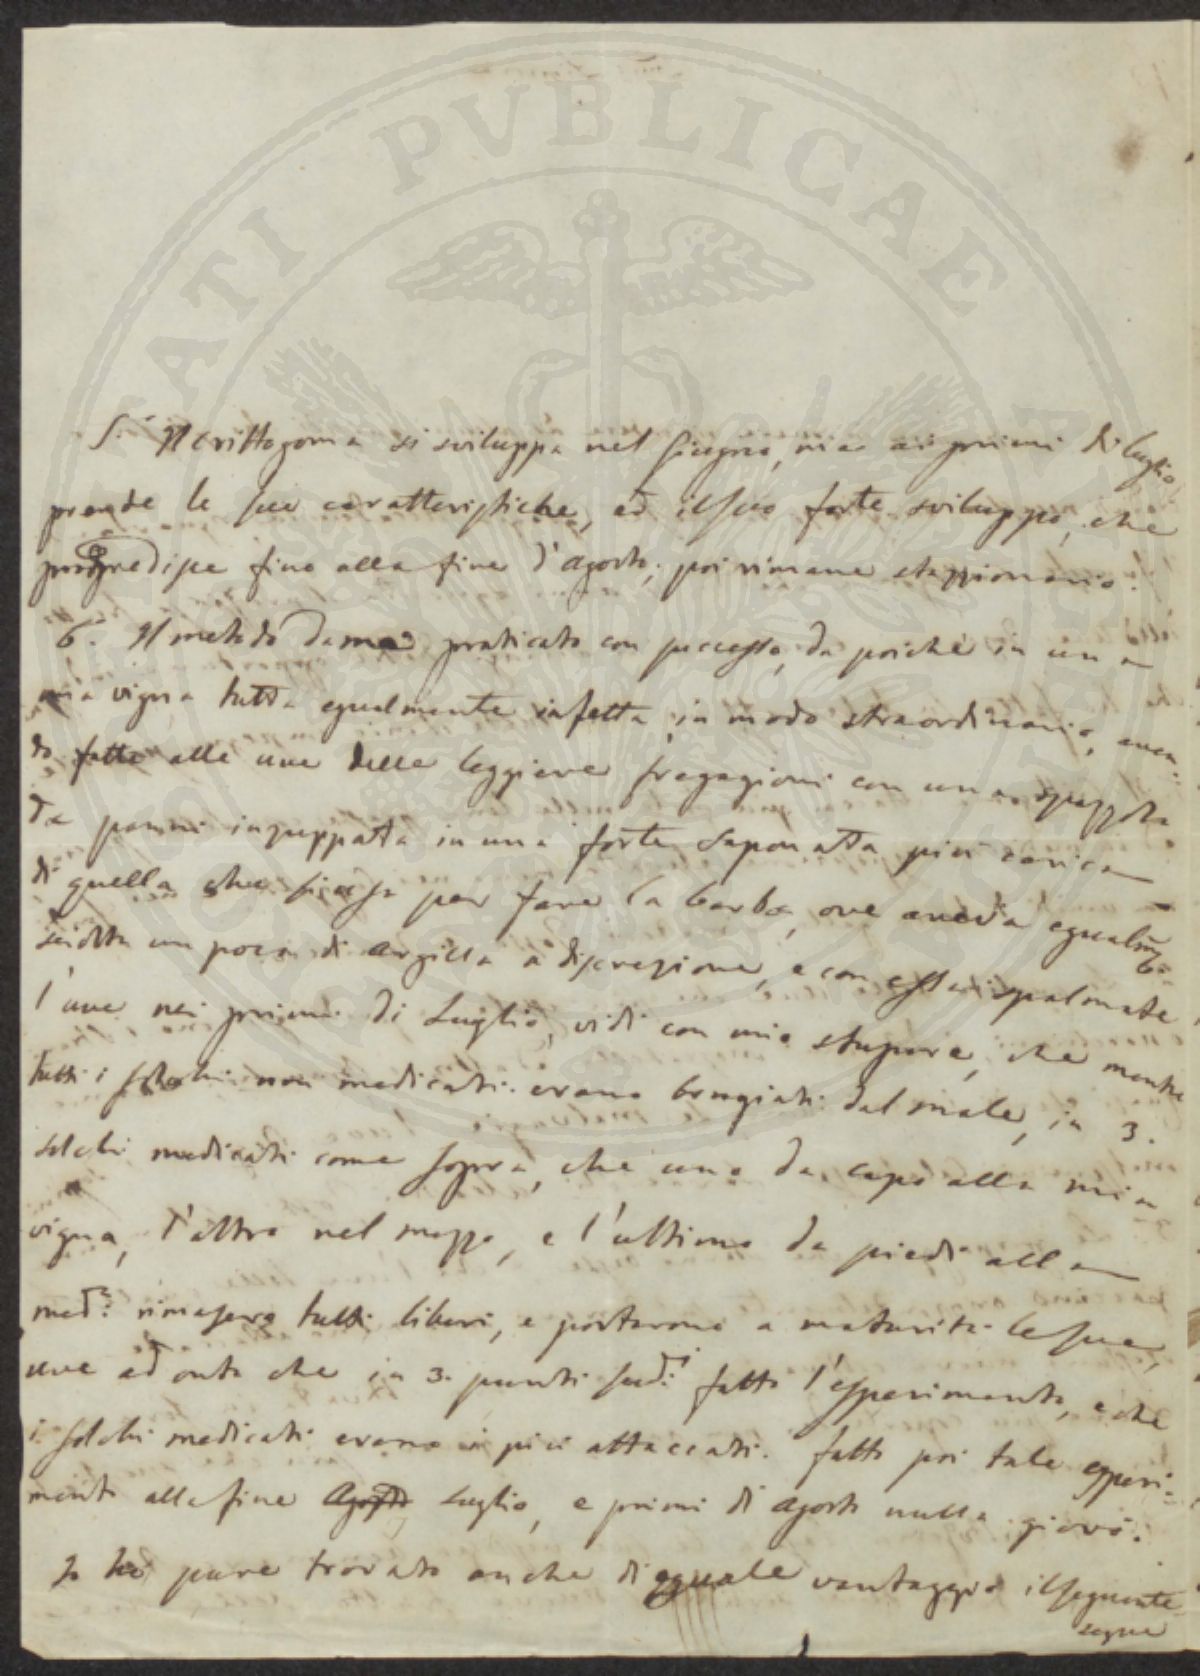 PVBLICAE
5.° Il crittogoma si sviluppa nel Giugno, ma ai primi di luglio
prende le sue caratteristiche, ed il suo forte sviluppo, che
progredisce fino alla fine d'agosto, poi rimane stazzionario.
6.° Il metodo da me praticato con successo, da poiche in una
mia vigna tutta egualmente infetta in modo straordinario, aven:
do fatte alle uve delle leggiere fregagioni con una spazzola
da panni inzuppata in una forte saponatta più carica
di quella che si usa per fare la barba, ove aveva egualm̃te
sciolta un poco di argilla a discrezione, e con essa spalmate
l'uve nei primi di Luglio, vidi con mio stupore, che mentre
tutti i solchi non medicati erano brugiati dal male, in 3.
solchi medicati come sopra, che uno da capo alla mia
vigna, l'altro nel mezzo, e l'ultimo da piedi alla
med.a rimasero tutti liberi, e portarono a maturità le sue
uve ad onta che in 3. punti sud.i fatto l'esperimento, e che
i solchi medicati erano i più attaccati. fatto poi tale esperi:
mento alla fine Agosto Luglio, e primi di Agosto nulla giovò.
Io ho pure trovato anche di eguale vantaggio il seguente
segue